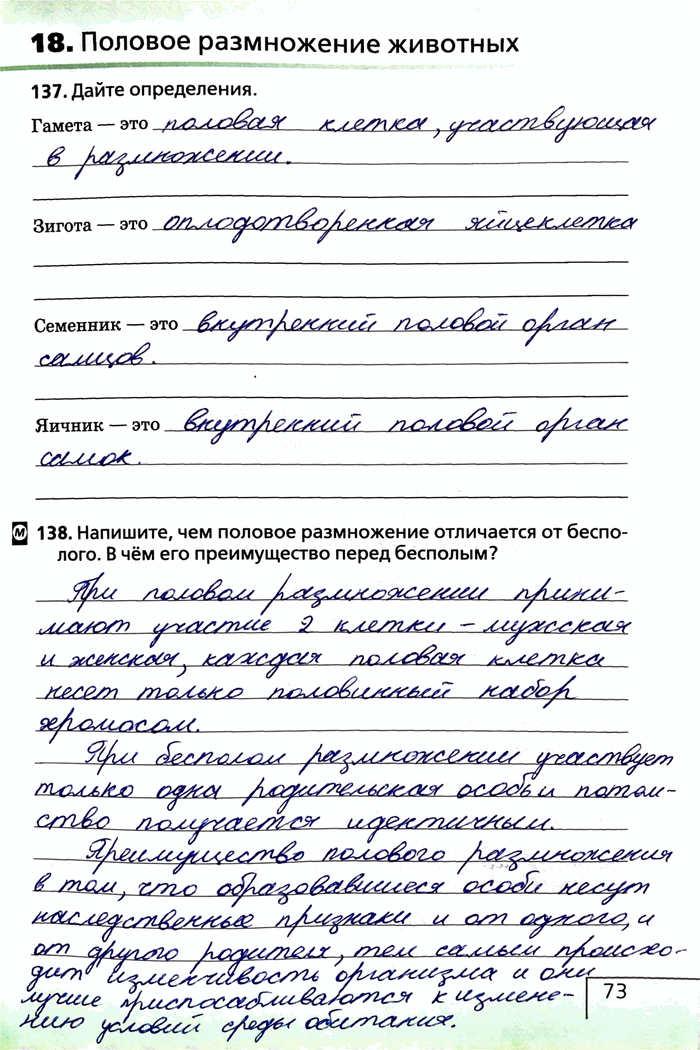 18. Половое размножение животных
137. Дайте определения.
Гамета — это половая клетка, участвующая
в размножении.
Зигота — это оплодотворенная яйцеклетка
Семенник — это внутренний половой орган
самцов.
Яичник — это внутренний половой орган
самок.
М 138. Напишите, чем половое размножение отличается от беспо-
лого. В чём его преимущество перед бесполым?
При половом размножении прини-
мают участие 2 клетки – мужская
и женская, каждая половая клетка
несет только половинный набор
хромосом.
При бесполом размножении участвует
только одна родительская особь и потом-
ство получается идентичным.
Преимущество полового размножения
в том, что образовавшиеся особи несут
наследственные признаки и от одного, и
от другого родителя, тем самым происхо-
дит изменчивость организма и они
лучше приспосабливаются к измене-
нию условий среды обитания.
73